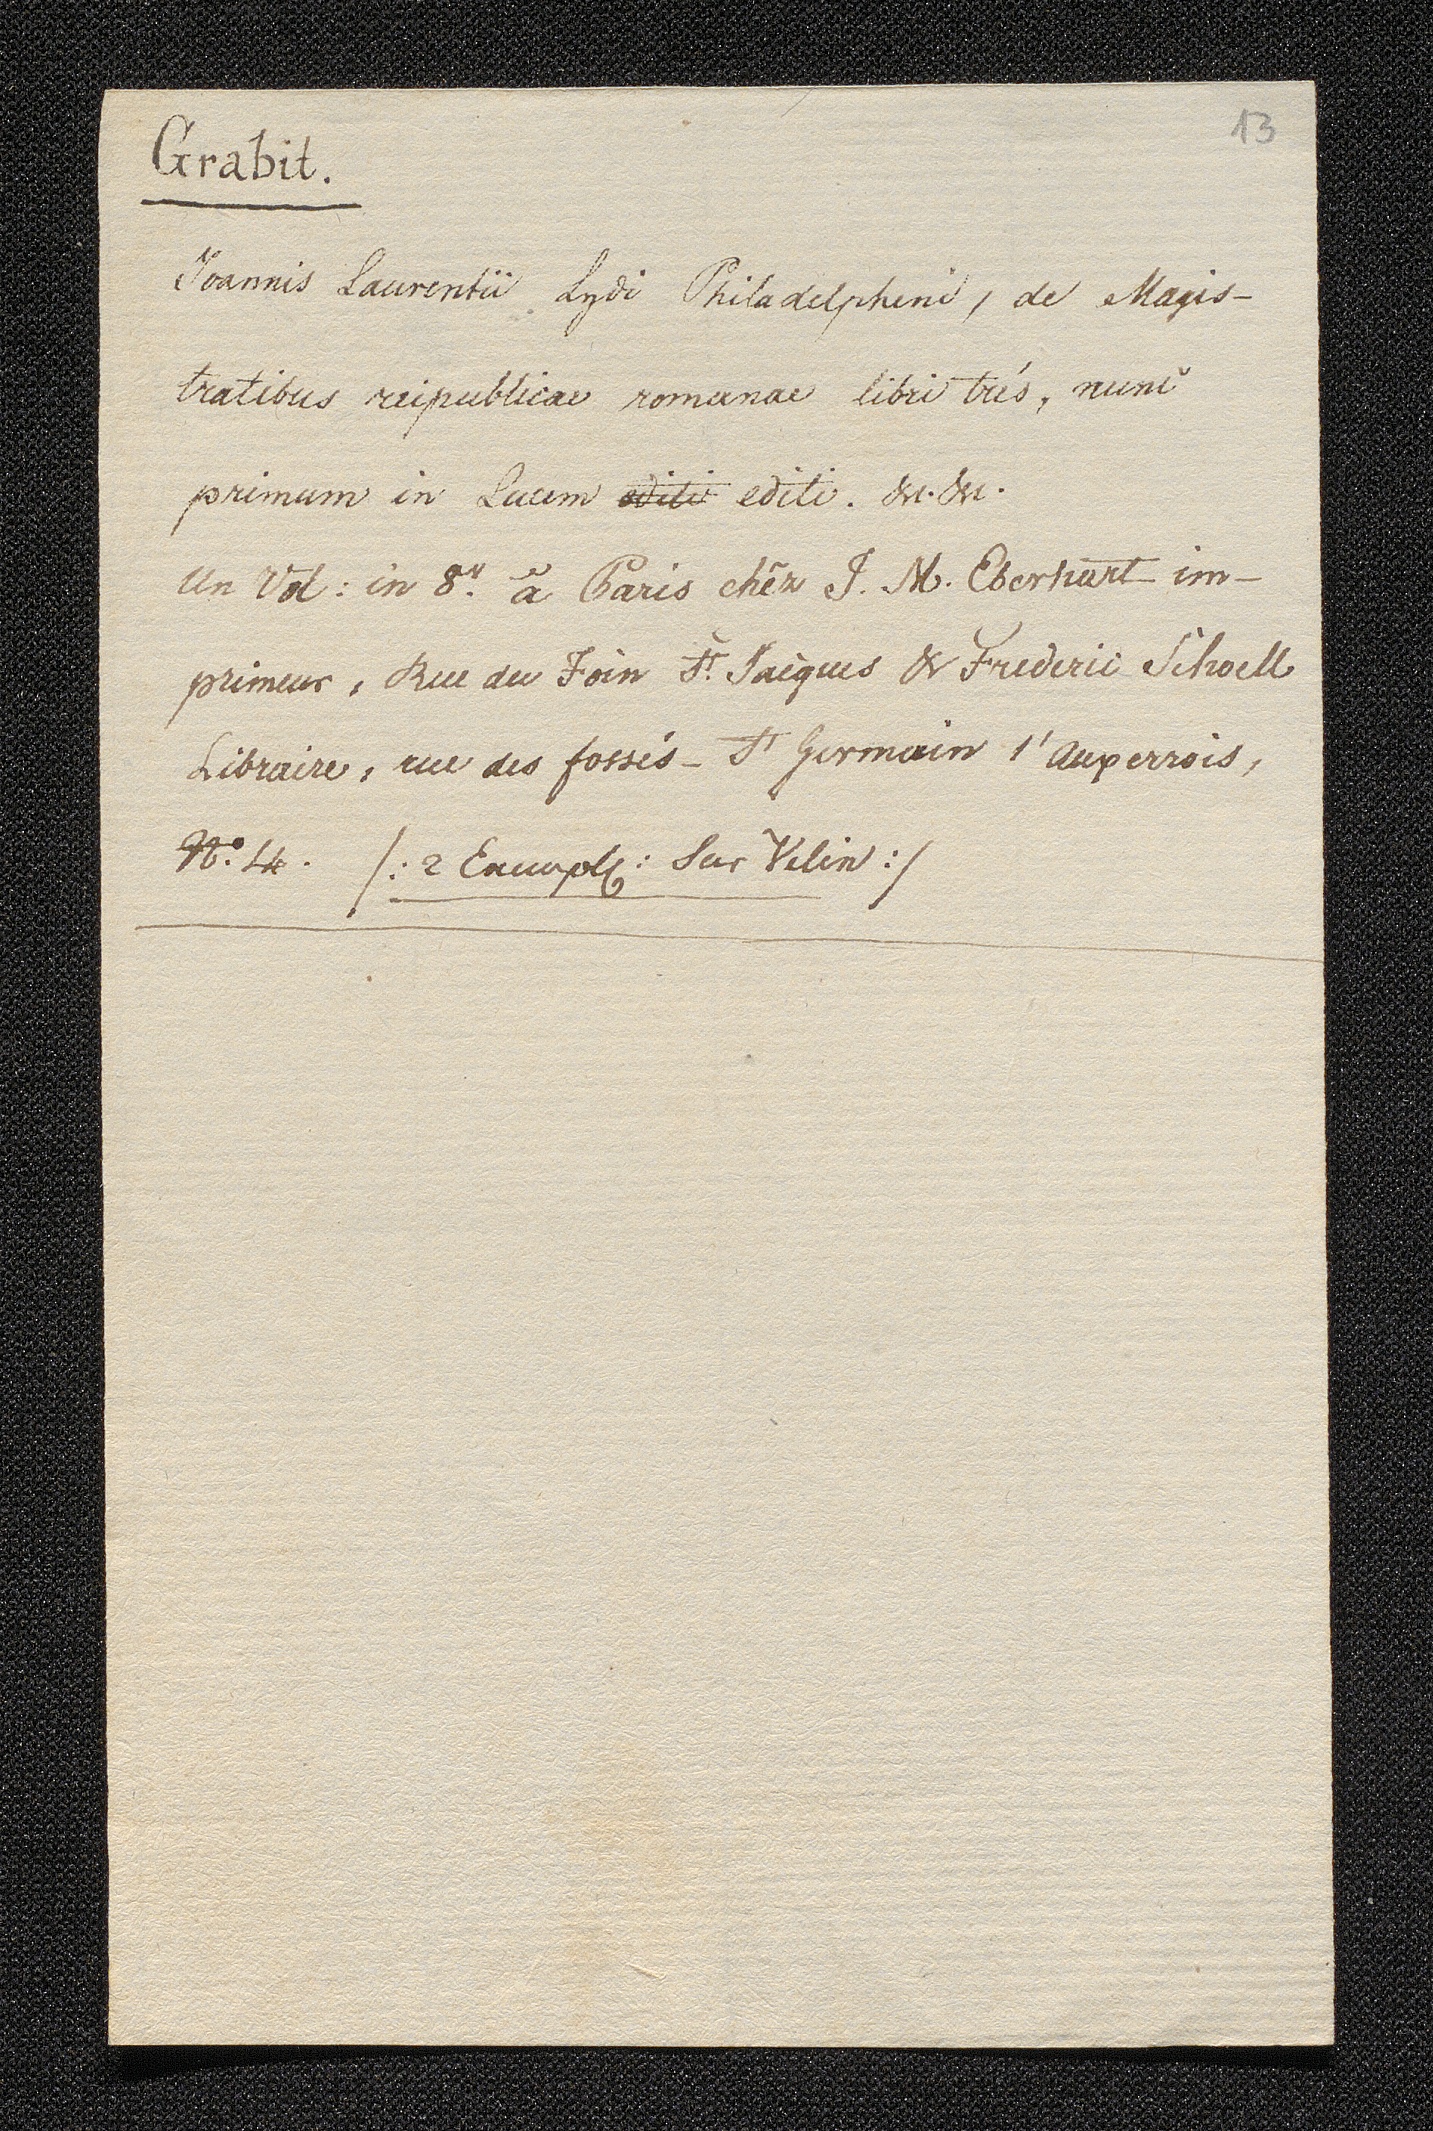 13
Grabit.
Joannis Laurentii Lydi Philadelpheni, de Magis-
tratibus reipublicae romanae libri trés, nunc
primum in Lucem editi editi. &c. &c.
Un Vol: in 8.º à Paris chêz J. M. Eberhart im-
primeur, Rue du Foin St. Jacques & Frederic Schoell
Libraire, rue des fossés - St Germain l'auxerrois,
Nº. 4. /: 2 Exempl: Sur Velin :/